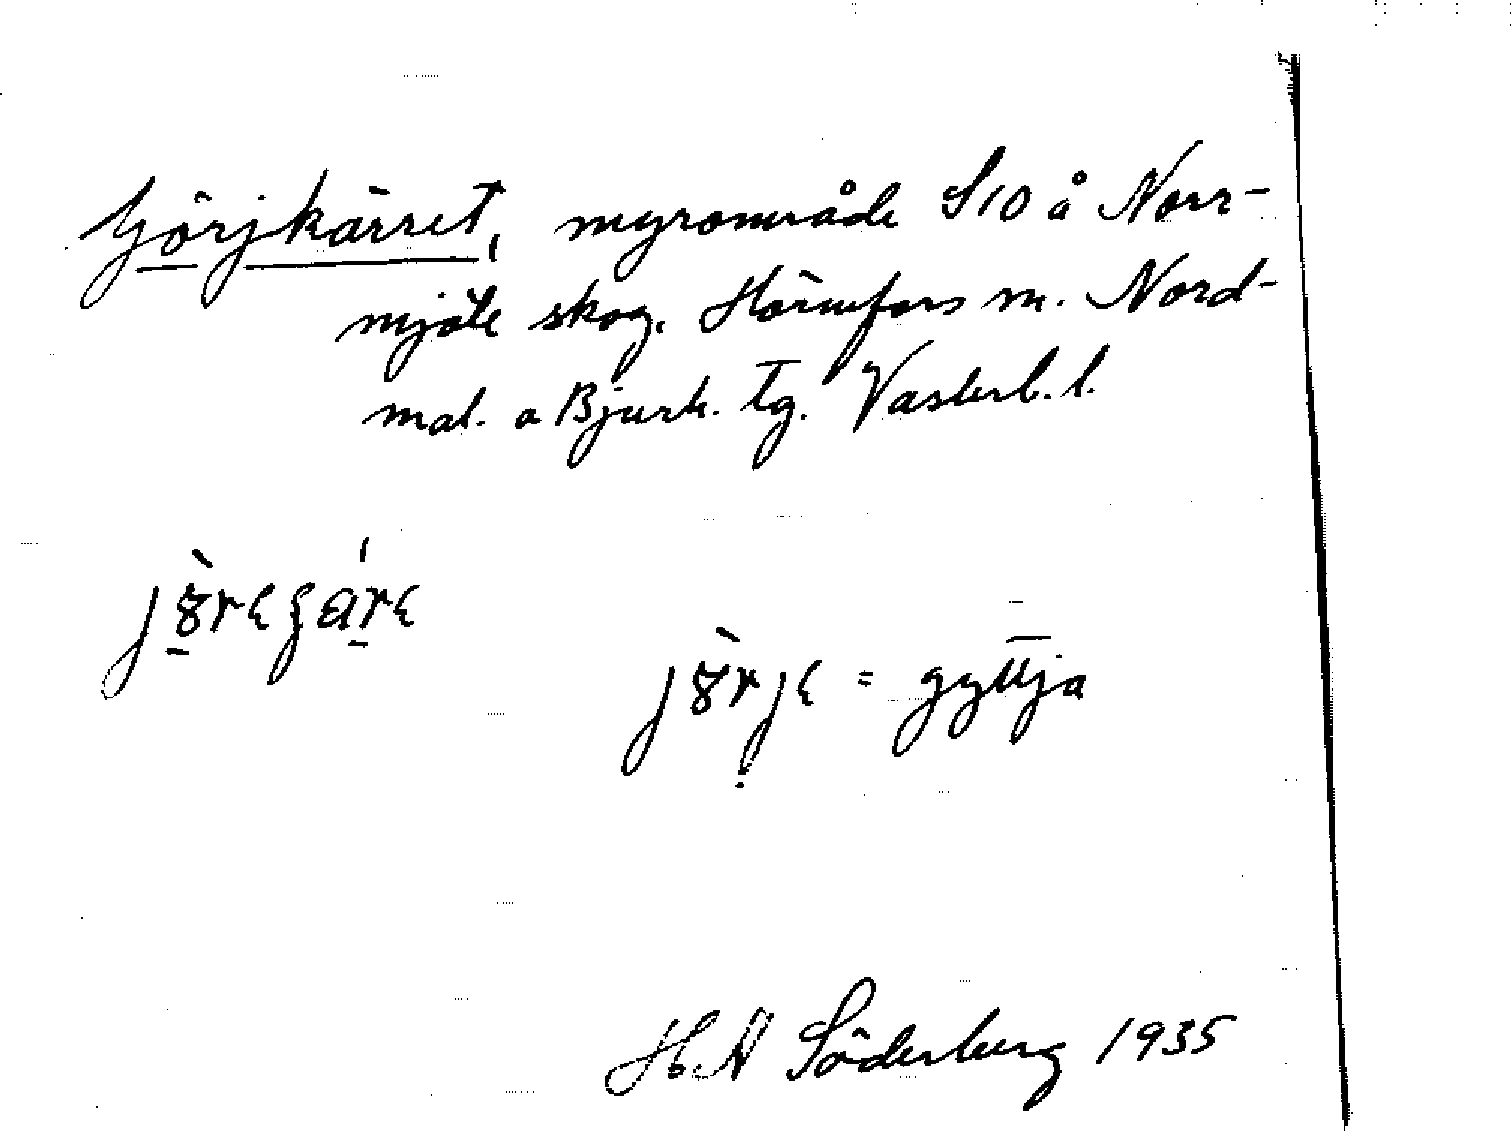 Görjkärret, myrområde S10 å Norr-
mjöle skog. Hörnefors m. Nord-
mal. o Bjurh. tg. Västerb. l.
= gyttja
H.A Söderberg 1935